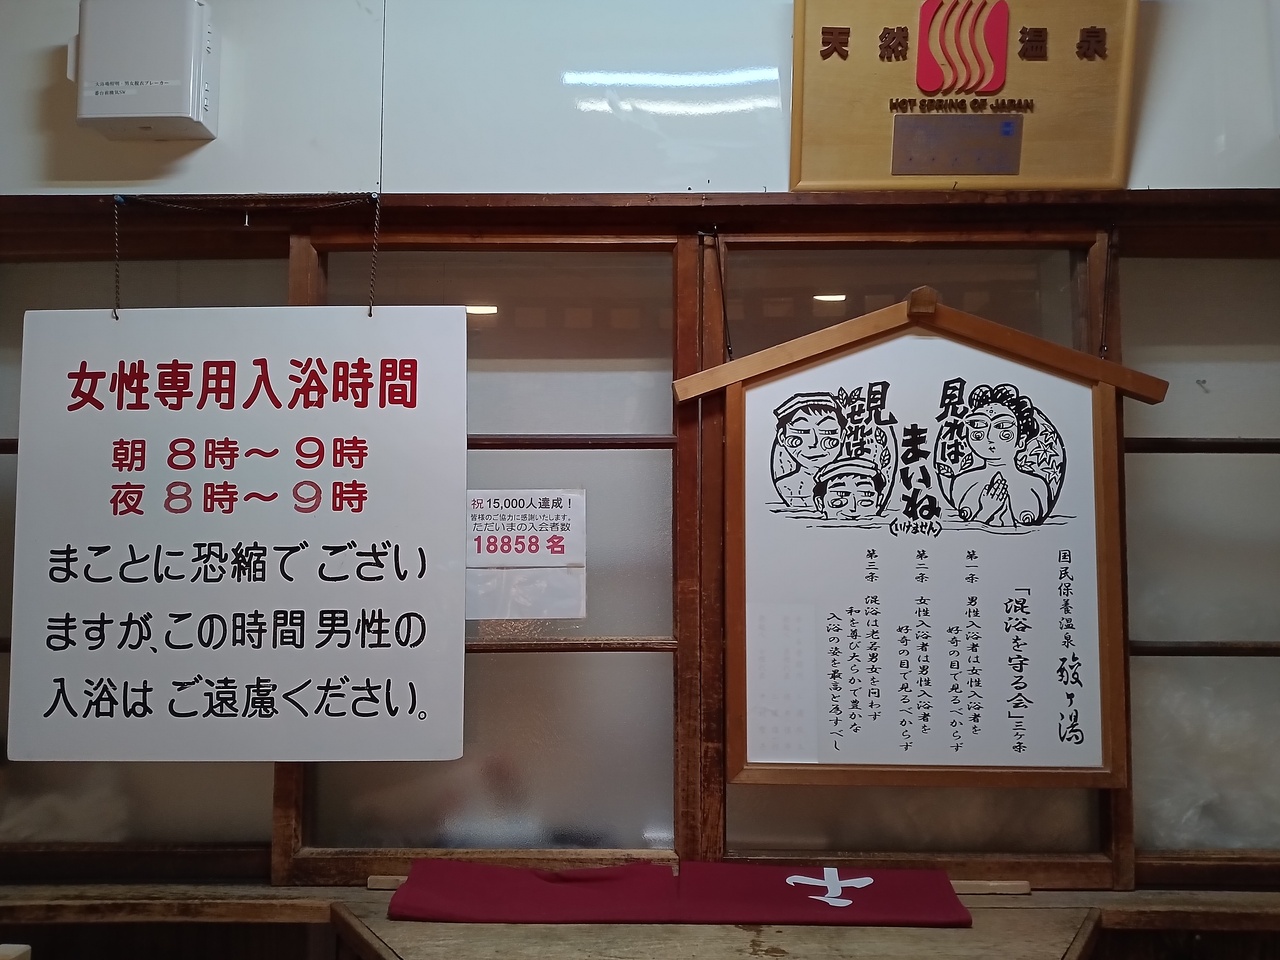 入浴場照明・男女脱衣ブレーカー
番台前換気SW
天然温泉
HOT SPRING OF JAPAN
女性専用入浴時間
朝 8時～9時
夜 8時～9時
まことに恐縮でござい
ますが、この時間男性の
入浴はご遠慮ください。
祝15,000人達成！
皆様のご協力に感謝いたします。
ただいまの入会者数
18858名
見れば
見せれば
まいね
(いけません)
国民保養温泉 酸ヶ湯
「混浴を守る会」三ヶ条
第一条 男性入浴者は女性入浴者を
好奇の目で見るべからず
第二条 女性入浴者は男性入浴者を
好奇の目で見るべからず
第三条 混浴は老若男女を問わず
和を尊び大らかで豊かな
入浴の姿を最高と為すべし
女